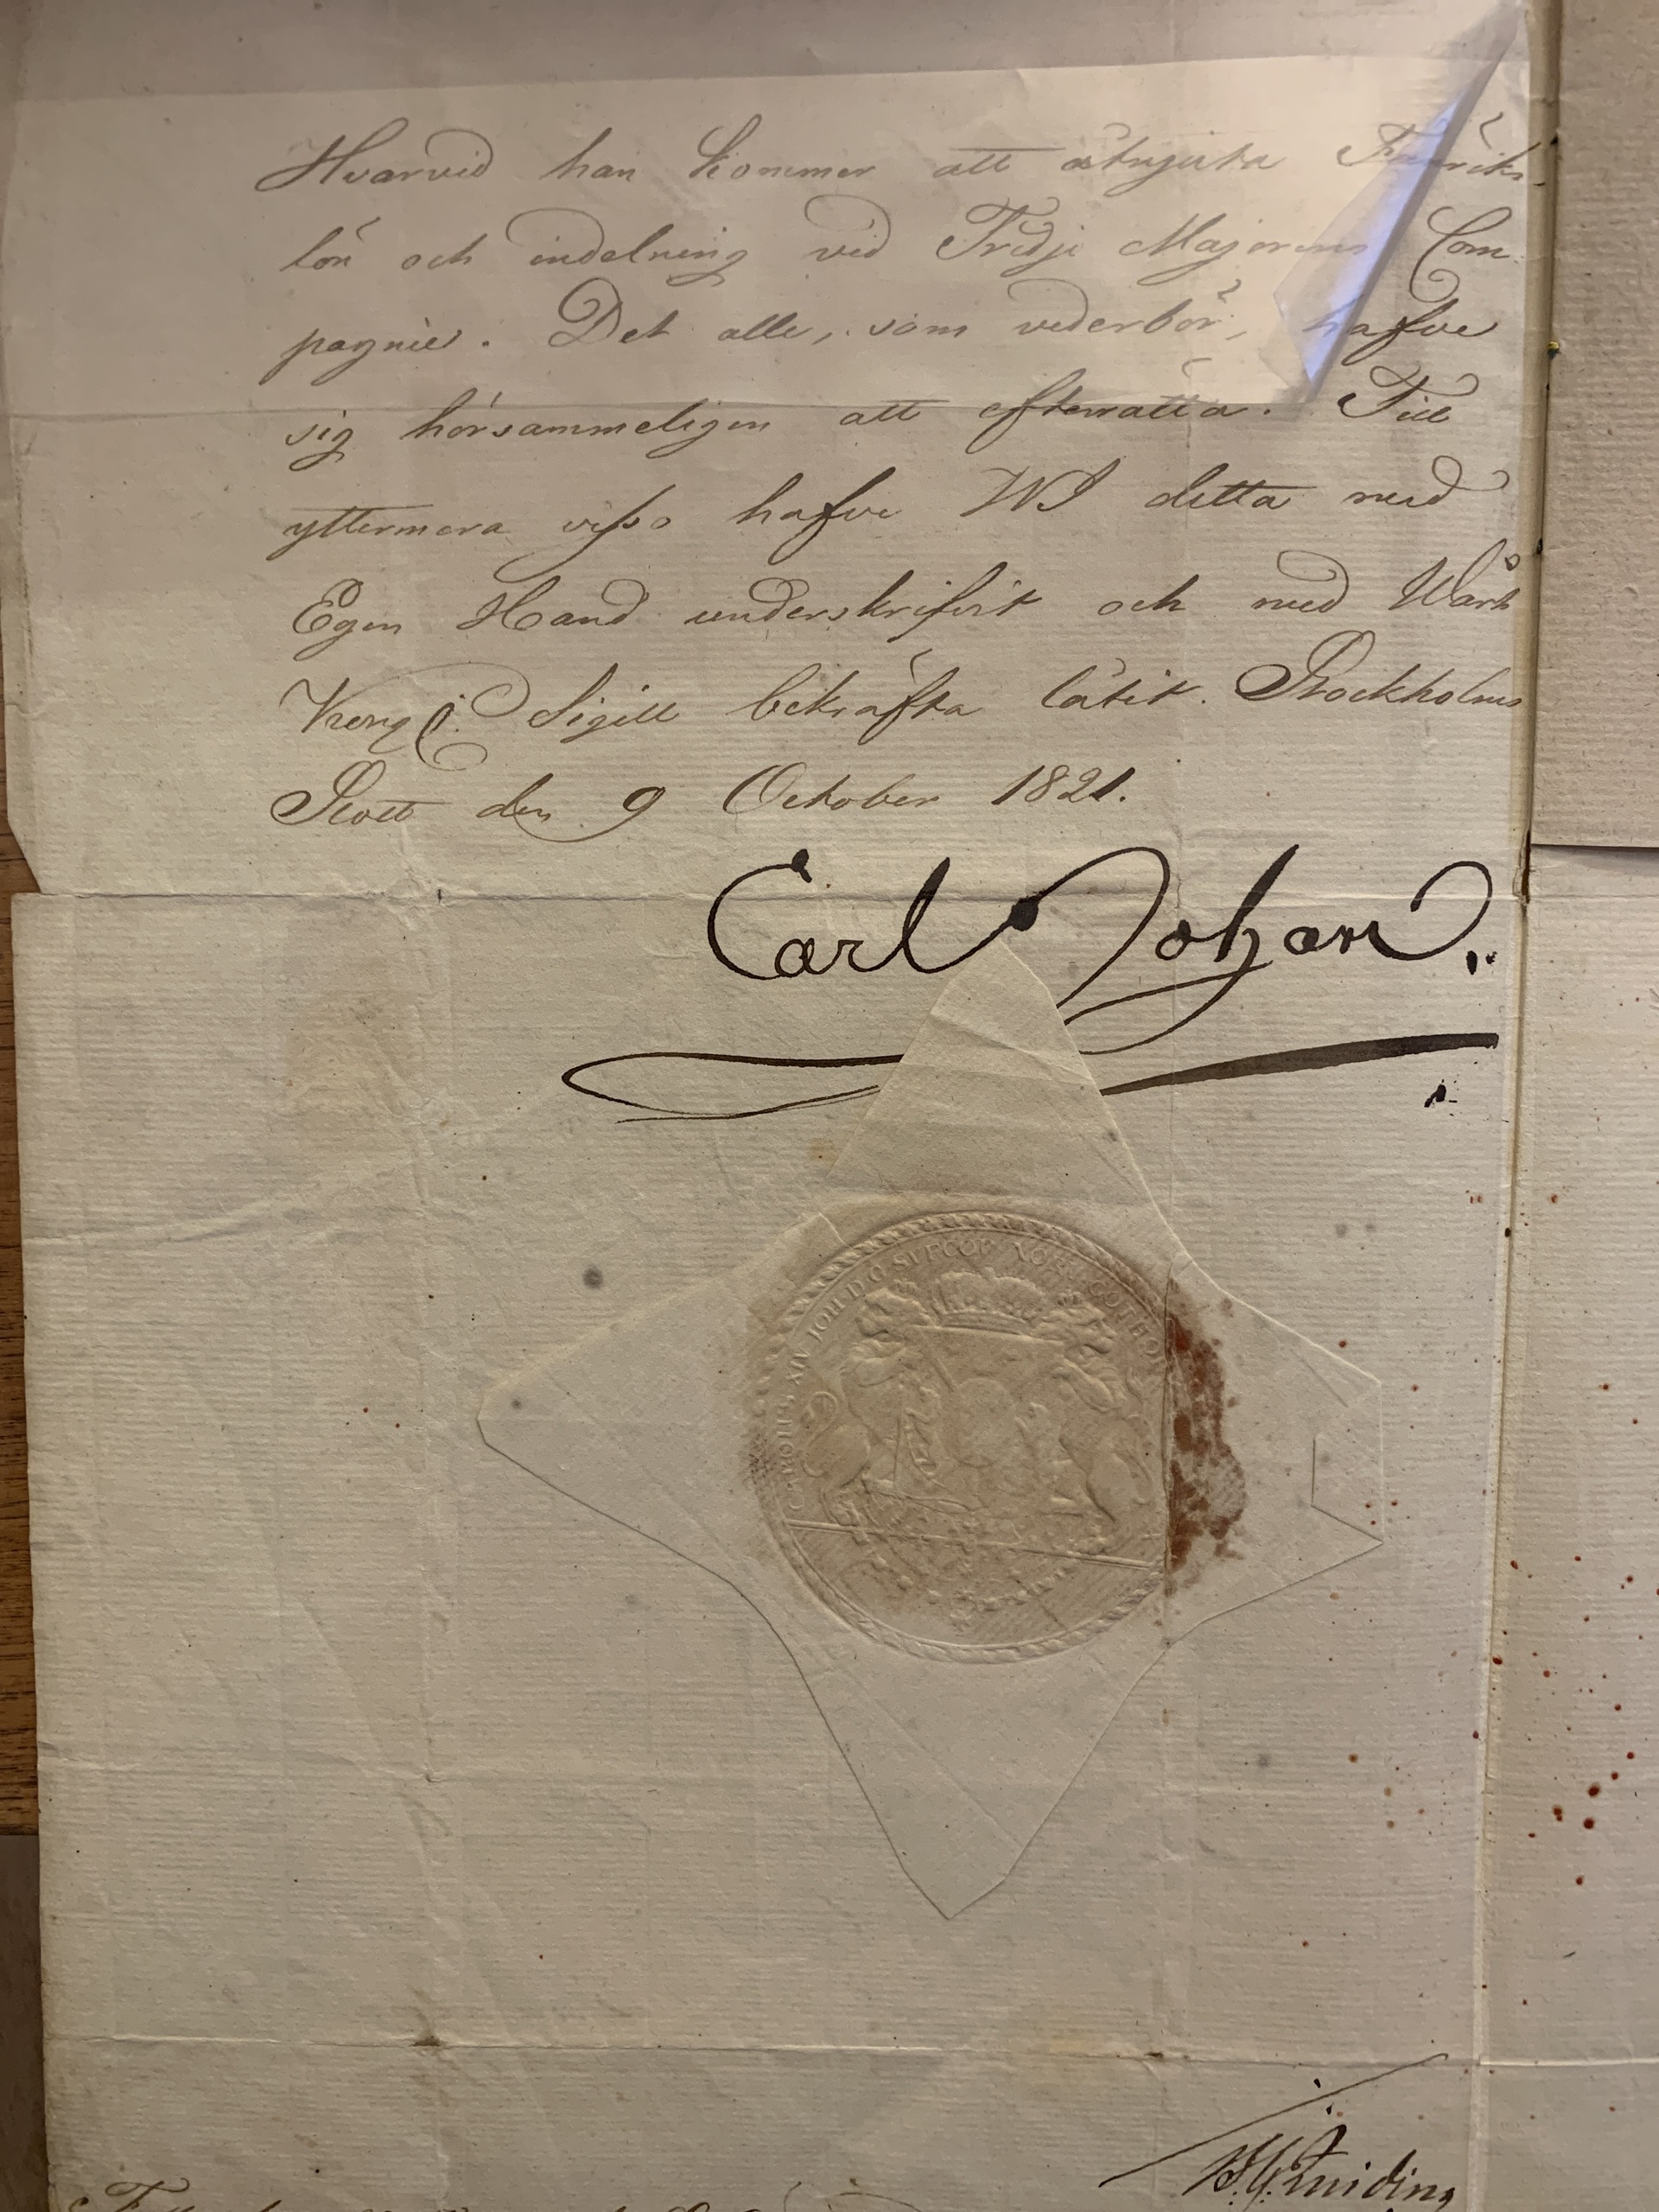 Hvarvid han kommer att åtnjuta Fänriks
lön och indelning vid Tredje Majorens Com-
pagnie. Det alle, som vederbör, hafve
sig hörsammeligen att efterrätta. Till
yttermera visso hafve WI detta med
Egen Hand underskrifvit och med Wårt
Kongl. Sigill bekräfta låtit. Stockholms
Slott den 9 October 1821.
Carl Johan
CAROLUS XIV JOH D G
NORV GOTHOR